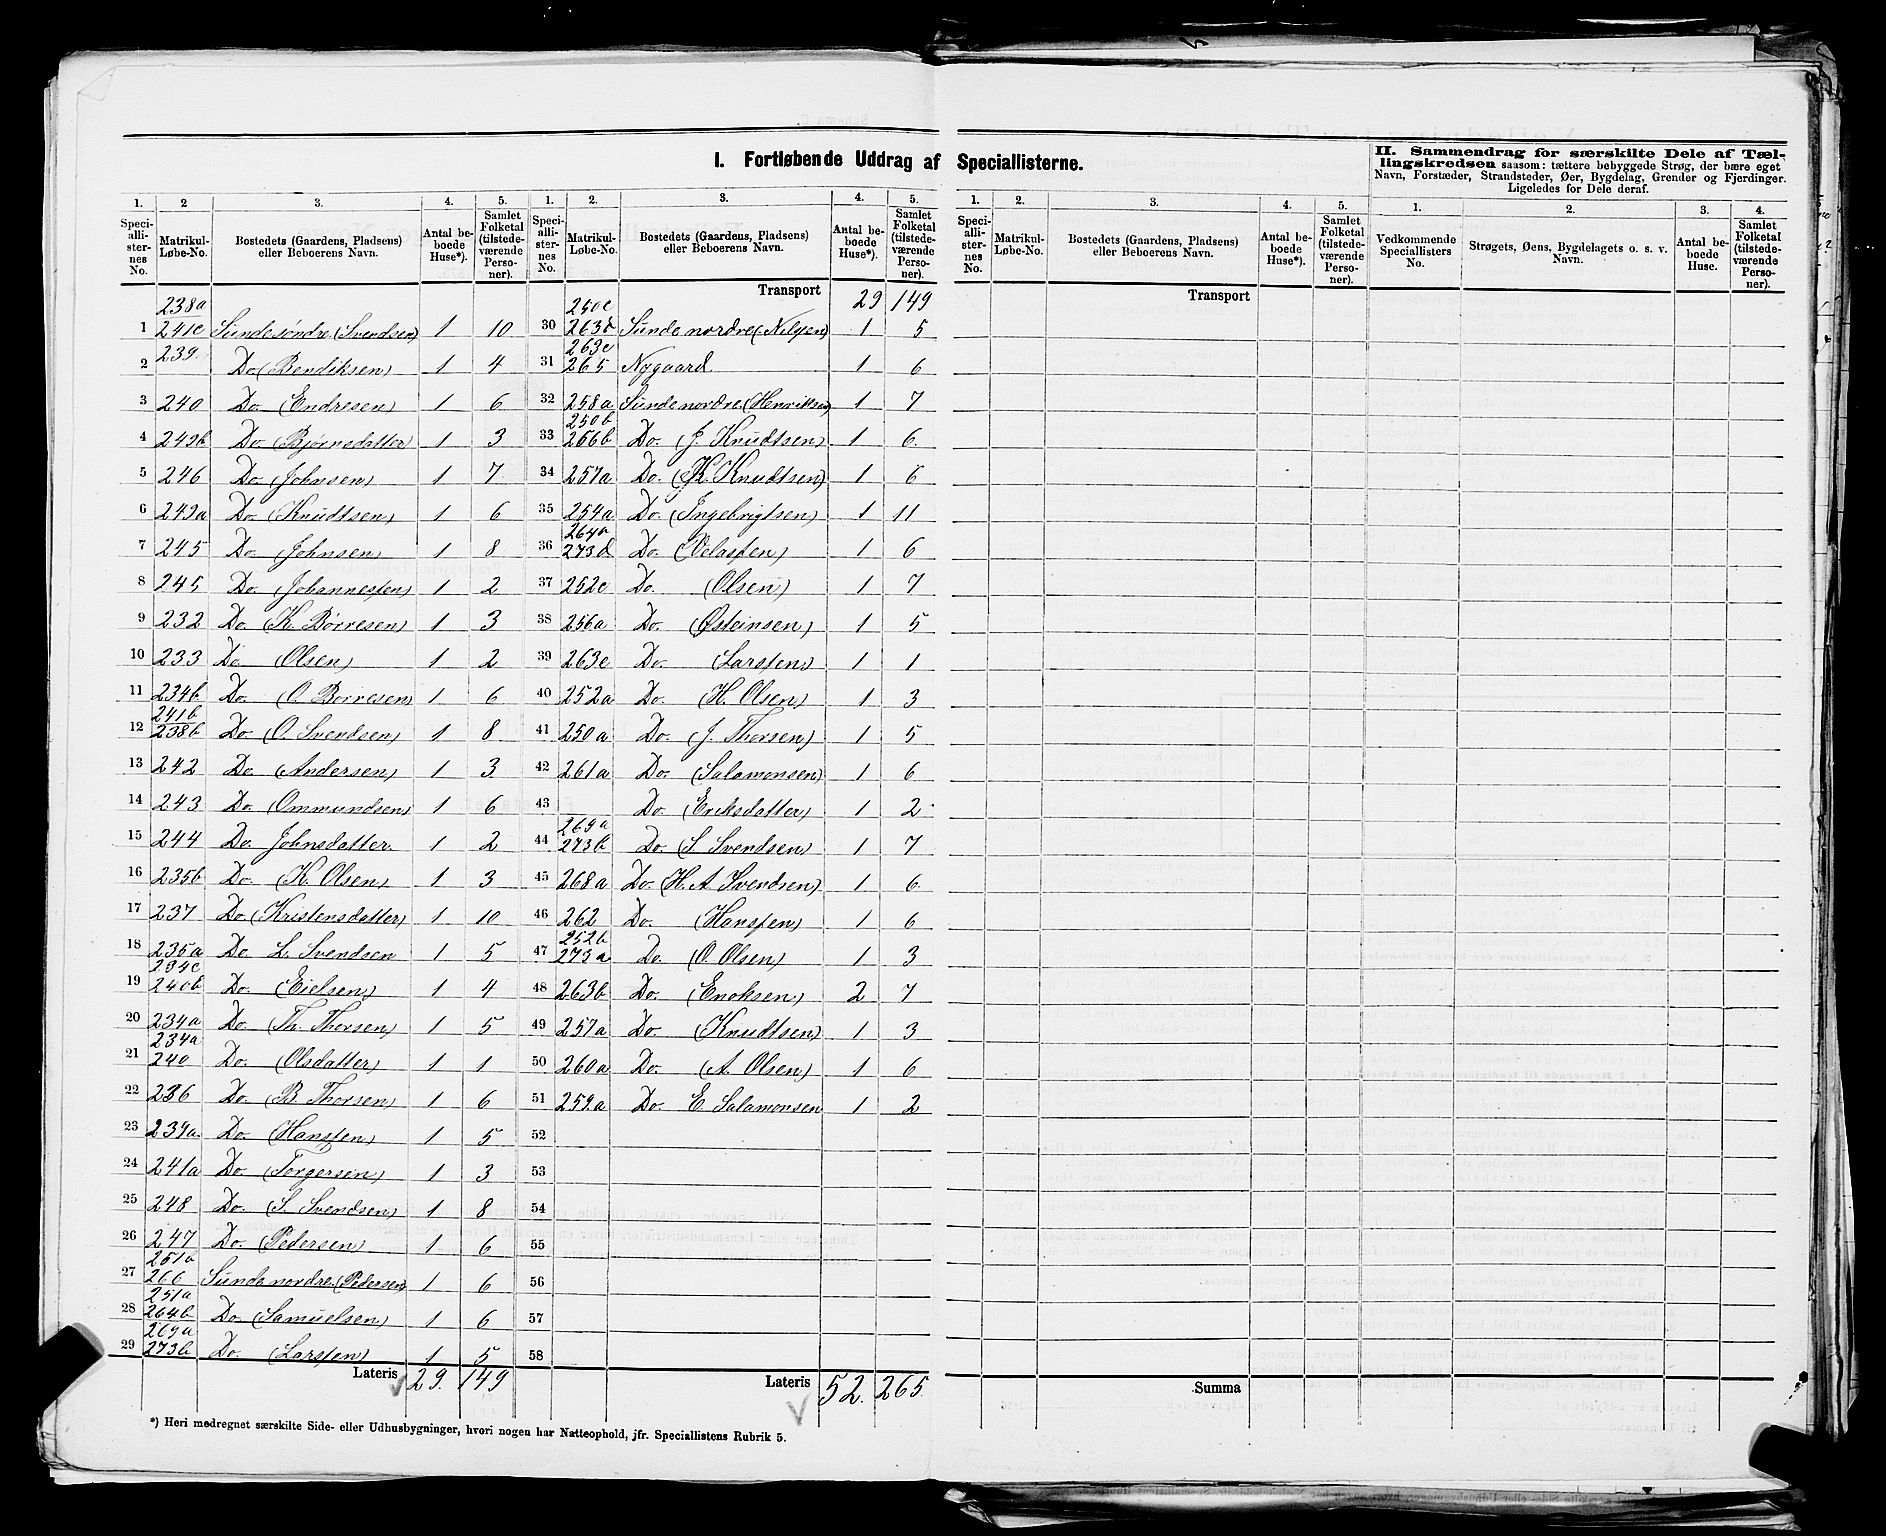 I. Fortløbende Uddrag af Speciallisterne.
II. Sammendrag for særskilte Dele af Tæl-
lingskredsen saasom: tættere bebyggede Strøg, der bære eget
Navn, Forstæder, Strandsteder, Øer, Bygdelag, Grender og Fjerdinger.
Ligeledes for Dele deraf.
1. 2 3. 4. 5.
Speciallisternes No. Matrikul-Løbe-No. Bostedets (Gaardens, Pladsens) eller Beboerens Navn. Antal beboede Huse*). Samlet Folketal (tilstedeværende Personer).
238a
1 241c Sunde søndre (Svendsen) 1 10
2 239. Do (Bendiksen) 1 4
3 240 Do. (Endresen) 1 6
4 249b Do. (Bjørnsdatter) 1 3
5 246 Do (Johnsen) 1 7
6 249a Do. (Knudtsen) 1 6
7 245 Do. (Johnsen) 1 8
8 245 Do. (Johannessen) 1 2
9 232 Do. (K. Børresen) 1 3
10 233 Do (Olsen) 1 2
11 234b Do. (O. Børresen) 1 6
241b
12 238b Do (O. Svendsen) 1 8
13 242 Do (Andersen) 1 3
14 243 Do. (Ommundsen) 1 6
15 244 Do. Johnsdatter. 1 2
16 235b Do. (K. Olsen) 1 3
17 237 Do. (Kristensdatter) 1 10
18 235a Do L. Svendsen 1 5
234c
19 240b Do. (Eielsen) 1 4
20 234a Do (Th. Thorsen) 1 5
234a
21 240 Do. (Olsdatter) 1 1
22 236 Do. (B. Thorsen) 1 6
23 239a. Do. (Hanssen) 1 5
24 241a Do. (Torgersen) 1 3
25 248 Do. (S. Svendsen) 1 8
26 247 Do. (Pedersen) 1 6
251a
27 266 Sunde nordre. (Pedersen) 1 6
251a
28 264b Do. (Samuelsen) 1 6
269a
29 273b Do. (Larssen) 1 5
Lateris 29. 149
1. 2. 3. 4. 5.
Speciallisternes No. Matrikul-Løbe-No. Bostedets (Gaardens, Pladsens) eller Beboerens Navn. Antal beboede Huse*). Samlet Folketal (tilstedeværende Personer).
Transport 29 149
250c
30 263d Sunde nordre (Nilsen) 1 5
263c
31 265 Nygaard 1 6
32 258a Sunde nordre. (Henriksen) 1 7
250b
33 266b Do. (J. Knudtsen) 1 6.
34 257a Do. (K. Knudtsen) 1 6
35 254a Do. (Ingebrigtsen) 1 11
264a
36 273d Do. (Velassen) 1 6
37 252c Do. (Olsen) 1 7
38 256a Do. (Østeinsen) 1 5
39 263c Do. (Larssen) 1 1
40 252a Do. (H. Olsen) 1 3
41 250a Do. (J. Thorsen) 1 5
42 261a Do. (Salamonsen) 1 6
43 Do. (Eriksdatter) 1 2
269a
44 273b Do. (S. Svendsen) 1 7
45 268a Do. (H. A. Svendsen) 1 6.
46 262 Do. (Hanssen) 1 6
252b
47 273a Do. (O. Olsen) 1 3
48 263b Do. (Enoksen) 2 7
49 257a Do. (Knudtsen) 1 3
50 260a Do. (A. Olsen) 1 6
51 259.a Do. E. Salamonsen 1 2
52
53
54
55
56
57
58
Lateris 52. 265.
1. 2. 3. 4. 5.
Speciallisternes No. Matrikul-Løbe-No. Bostedets (Gaardens, Pladsens) eller Beboerens Navn. Antal beboede Huse*). Samlet Folketal (tilstedeværende Personer).
Transport
Summa
1. 2. 3. 4.
Vedkommende Speciallisters No. Strøgets, Øens, Bygdelagets o. s. v. Navn. Antal beboede Huse. Samlet Folketal (tilstedeværende Personer).
*) Heri medregnet særskilte Side- eller Udhusbygninger, hvori nogen har Natteophold, jfr. Speciallistens Rubrik 5.